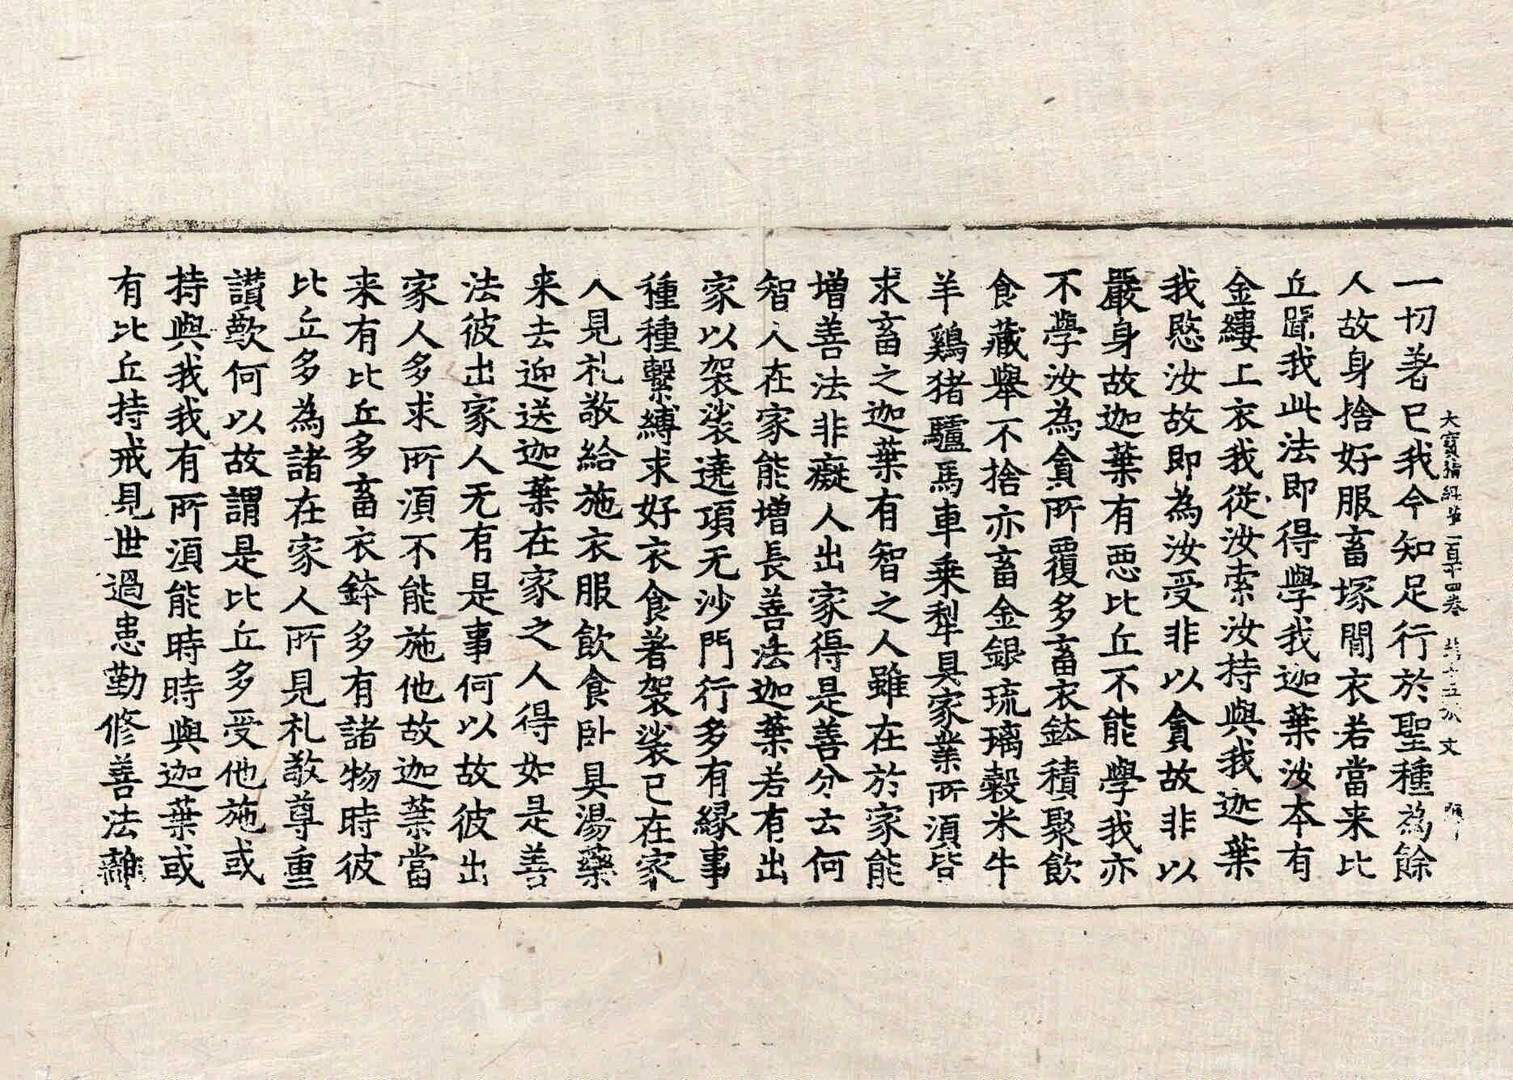 大寶積經第一百十四卷
一切著已我今知足行於聖種為餘
人故身捨好服畜塚間衣若當来比
丘聞我此法即得學我迦葉汝本有
金縷上衣我從汝索汝持與我迦葉
我愍汝故即為汝受非以貪故非以
嚴身故迦葉有惡比丘不能學我亦
不學汝為貪所覆多畜衣鉢積聚飲
食藏舉不捨亦畜金銀琉璃穀米牛
羊鷄猪驢馬車乗犂具家業所湏皆
求畜之迦葉有智之人雖在於家能
增善法非癡人出家得是善分云何
智人在家能增長善法迦葉若有出
家以袈裟遶項无沙門行多有縁事
種種繫縛求好衣食著袈裟已在家
人見礼敬給施衣服飲食卧具湯藥
来去迎送迦葉在家之人得如是善
法彼出家人无有是事何以故彼出
家人多求所湏不能施他故迦葉當
来有比丘多畜衣鉢多有諸物時彼
比丘多為諸在家人所見礼敬尊重
讃歎何以故謂是比丘多受他施或
持與我我有所湏能時時與迦葉或
有比丘持戒見世過患勤修善法離